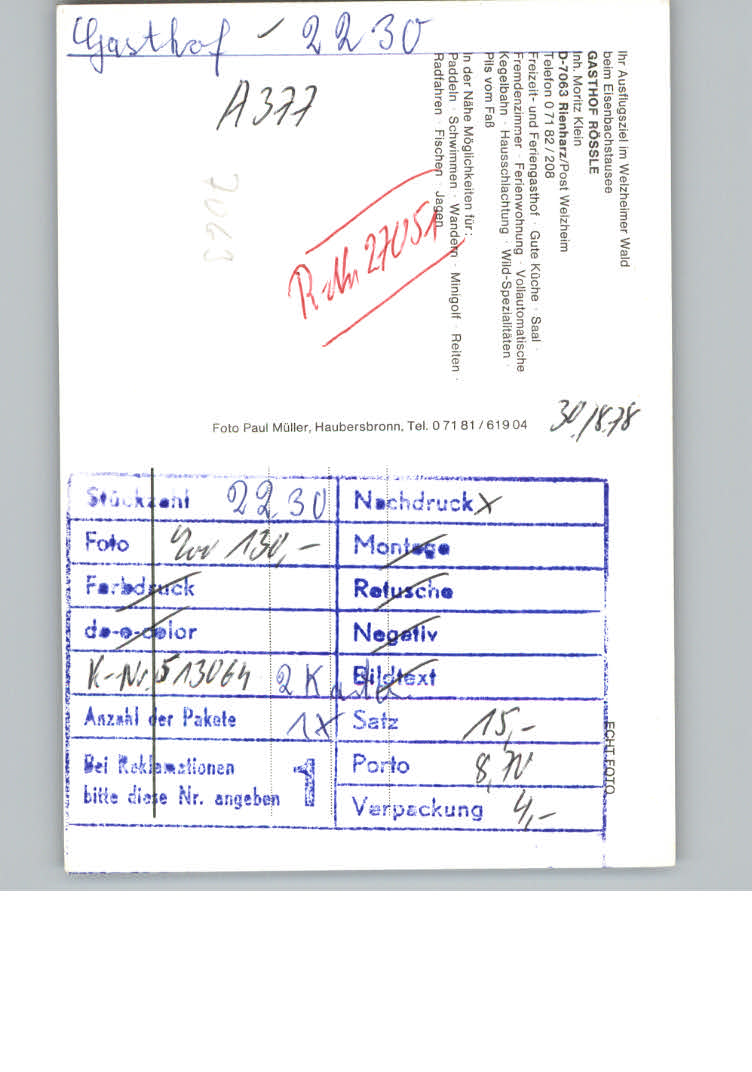 Gasthof - 2230
A 377
7063
R-Nr 27051
Ihr Ausflugsziel im Welzheimer Wald
beim Eisenbachstausee
GASTHOF RÖSSLE
Inh. Moritz Klein
D-7063 Rienharz/Post Welzheim
Telefon 0 71 82 / 208
Freizeit- und Feriengasthof · Gute Küche · Saal ·
Fremdenzimmer · Ferienwohnung · Vollautomatische
Kegelbahn · Hausschlachtung · Wild-Spezialitäten ·
Pils vom Faß
In der Nähe Möglichkeiten für:
Paddeln · Schwimmen · Wandern · Minigolf · Reiten ·
Radfahren · Fischen · Jagen
Foto Paul Müller, Haubersbronn, Tel. 0 71 81 / 6 19 04
30/8.78
Stückzahl 2230
Nachdruck X
Foto 130,-
Montage
Farbdruck
Retusche
de-e-color
Negativ
K-Nr. 513064 2 Karten
Bildtext
Anzahl der Pakete 1X
Satz 15,-
Bei Reklamationen
bitte diese Nr. angeben 1
Porto 8,70
Verpackung 4,-
ECHT FOTO